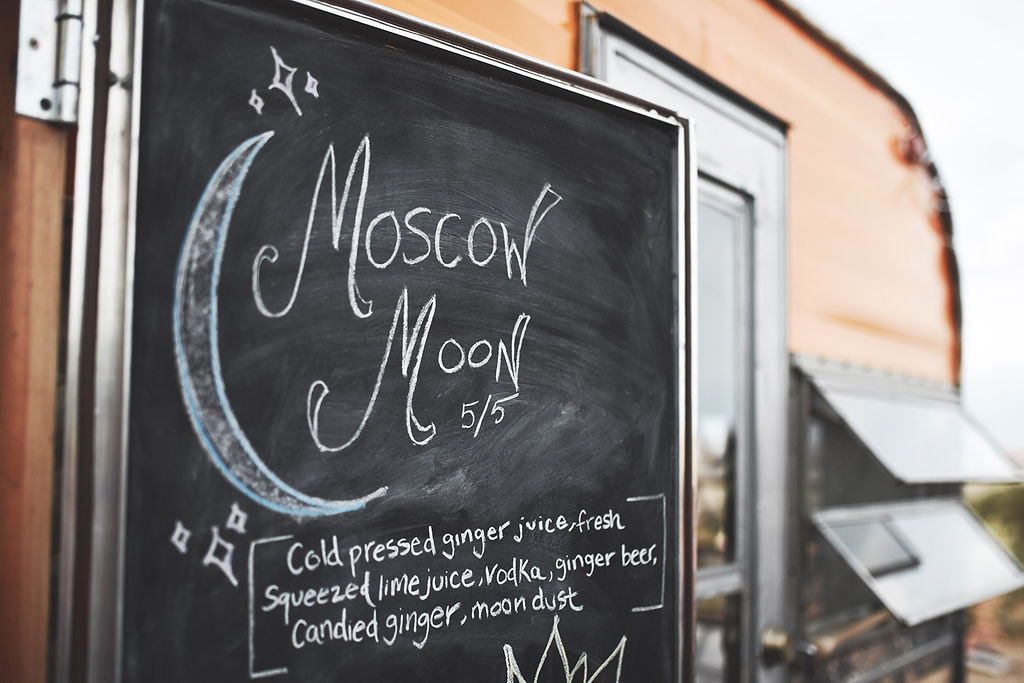 Moscow
Moon
5/5
Cold pressed ginger juice, fresh
Squeezed lime juice, vodka, ginger beer,
Candied ginger, moon dust